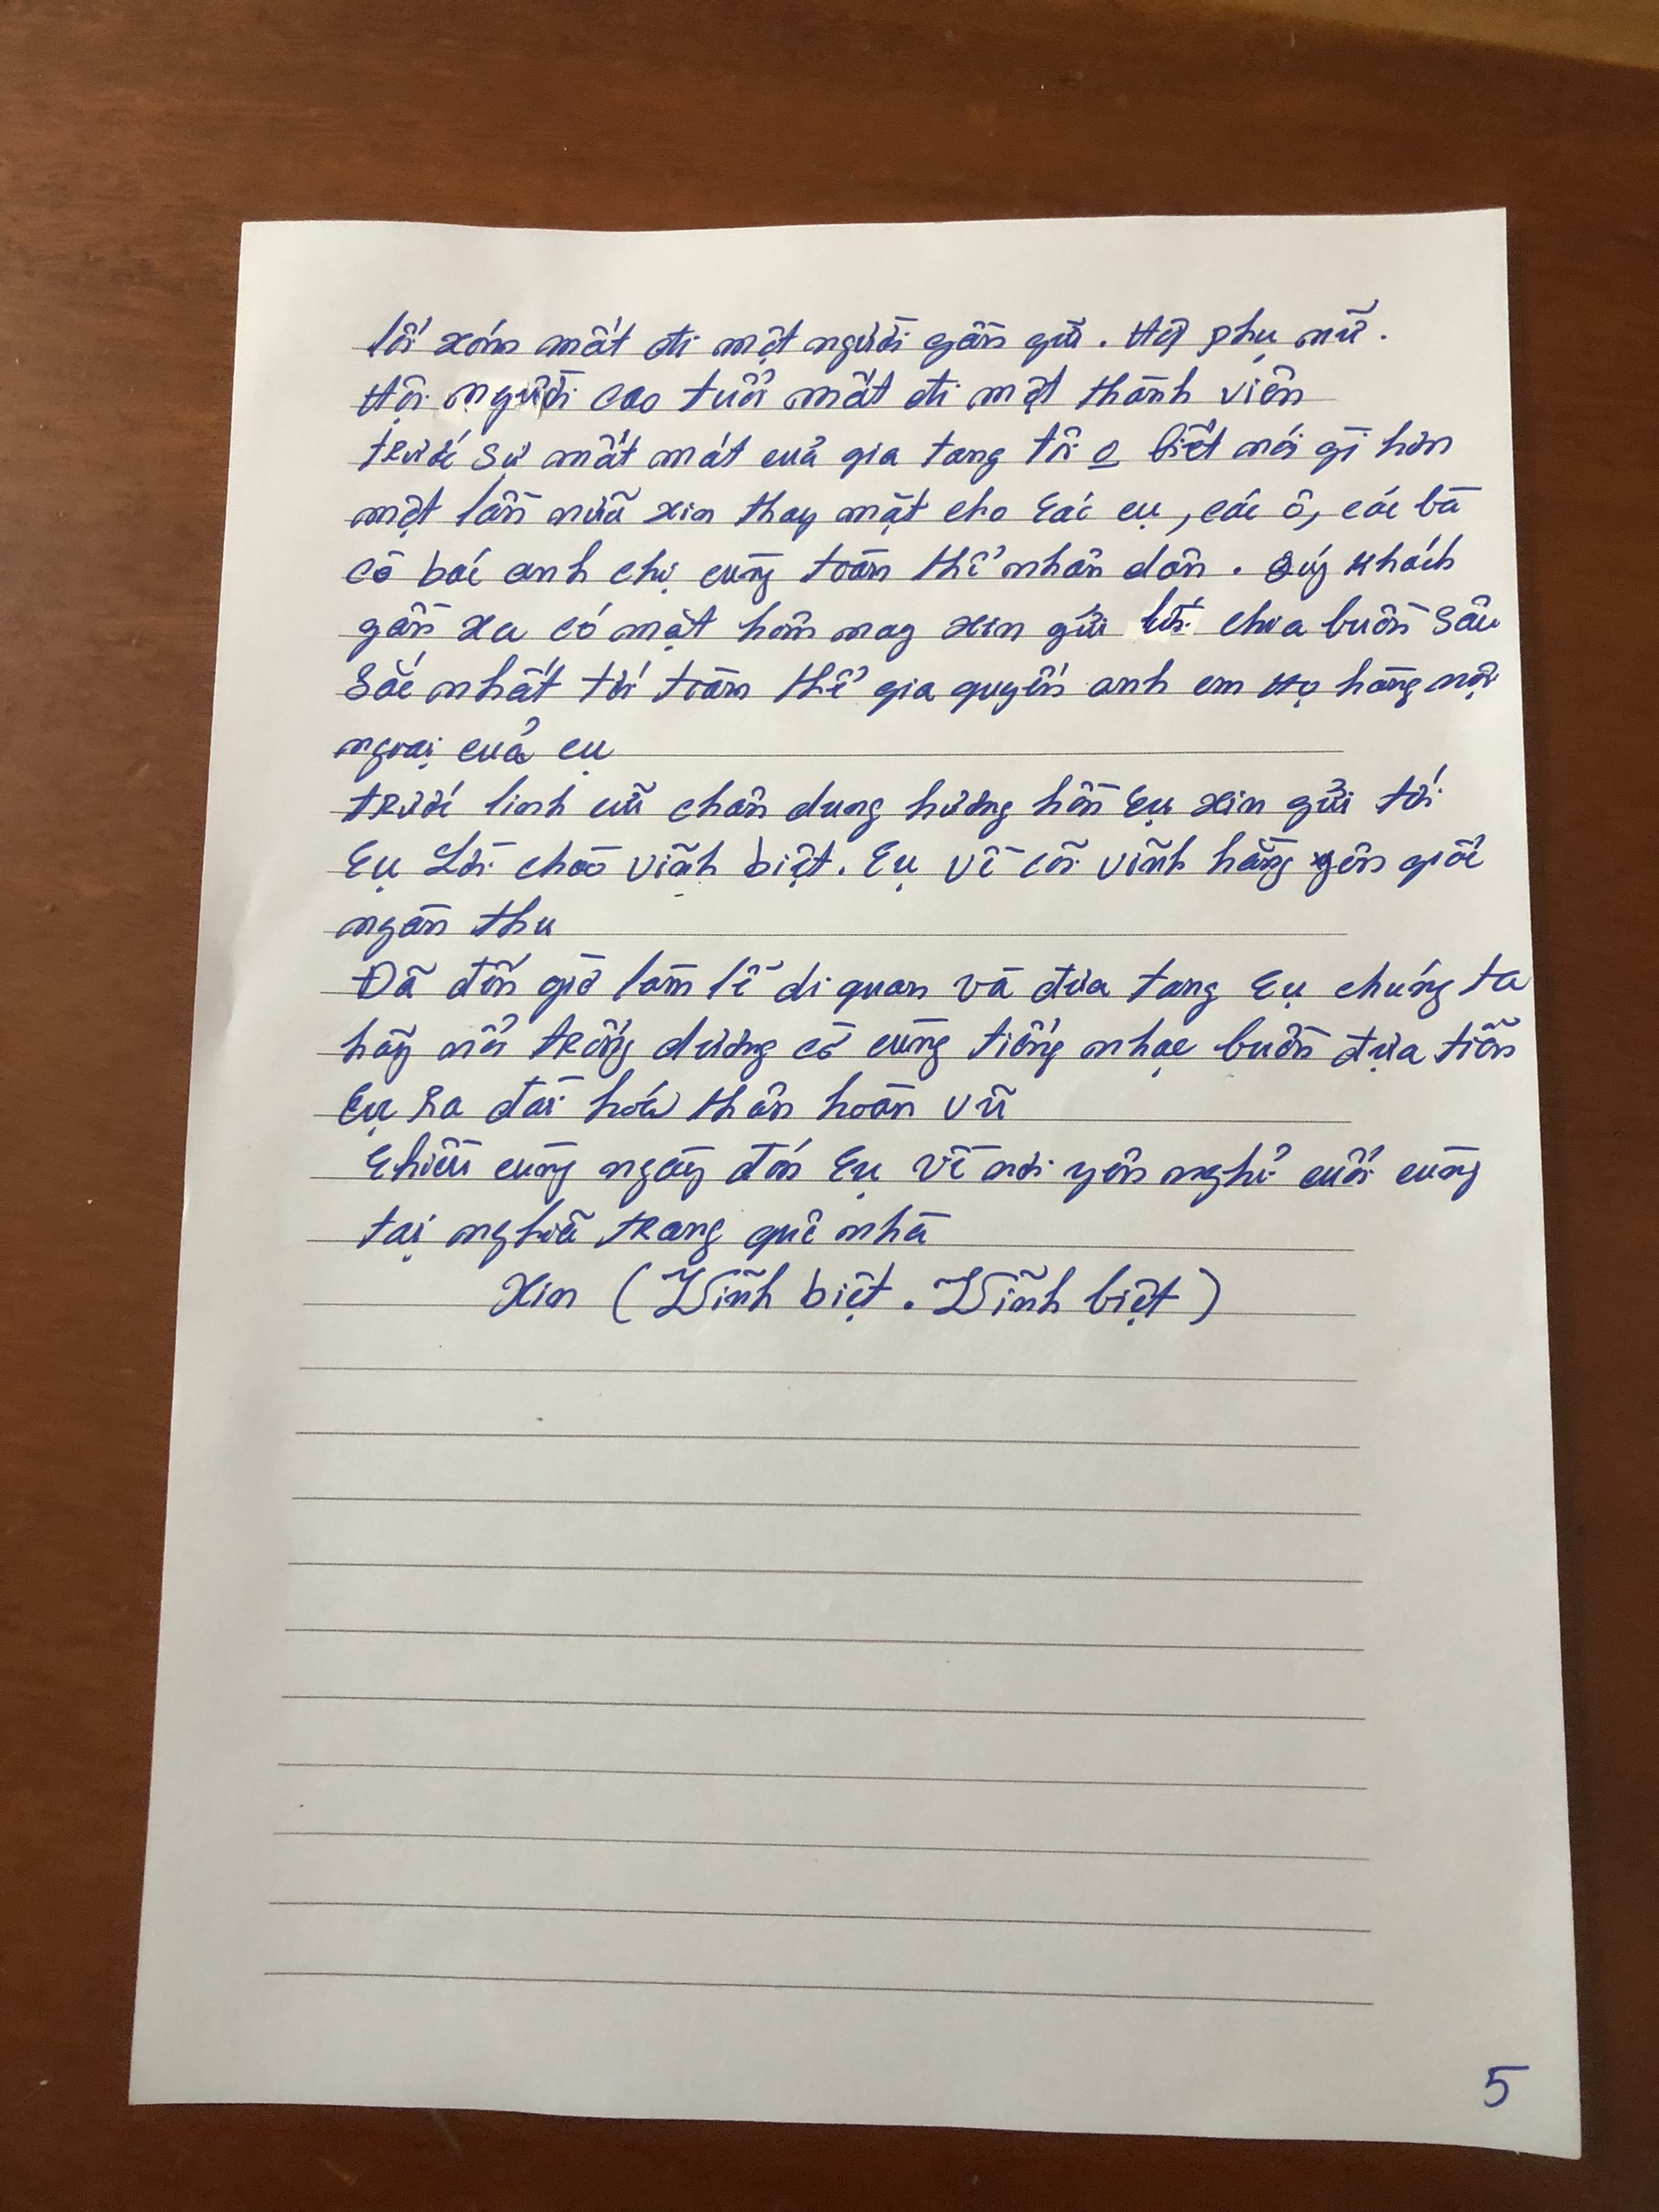 lối xóm mất đi một người gần gũi. Hội phụ nữ.
Hội người cao tuổi mất đi một thành viên
trước sự mất mát của gia tang tôi o biết nói gì hơn
một lần nữa xin thay mặt cho Các cụ, các ô, các bà
cô bác anh chị cùng toàn thể nhân dân. Quý khách
gần xa có mặt hôm nay xin gửi lời chia buồn Sâu
Sắc nhất tới toàn thể gia quyến anh em Họ hàng nội
ngoại của cụ
trước linh cữu chân dung hương hồn Cụ xin gửi tới
Cụ Lời chào vĩnh biệt. Cụ về cõi vĩnh hằng yên giấc
ngàn thu
Đã đến giờ làm lễ di quan và đưa tang Cụ chúng ta
hãy nổi trống dương cờ cùng tiếng nhạc buồn đưa tiễn
Cụ ra đài hóa thân hoàn vũ
Chiều cùng ngày đón Cụ về nơi yên nghỉ cuối cùng
tại nghĩa trang quê nhà
Xin (Vĩnh biệt. Vĩnh biệt)
5